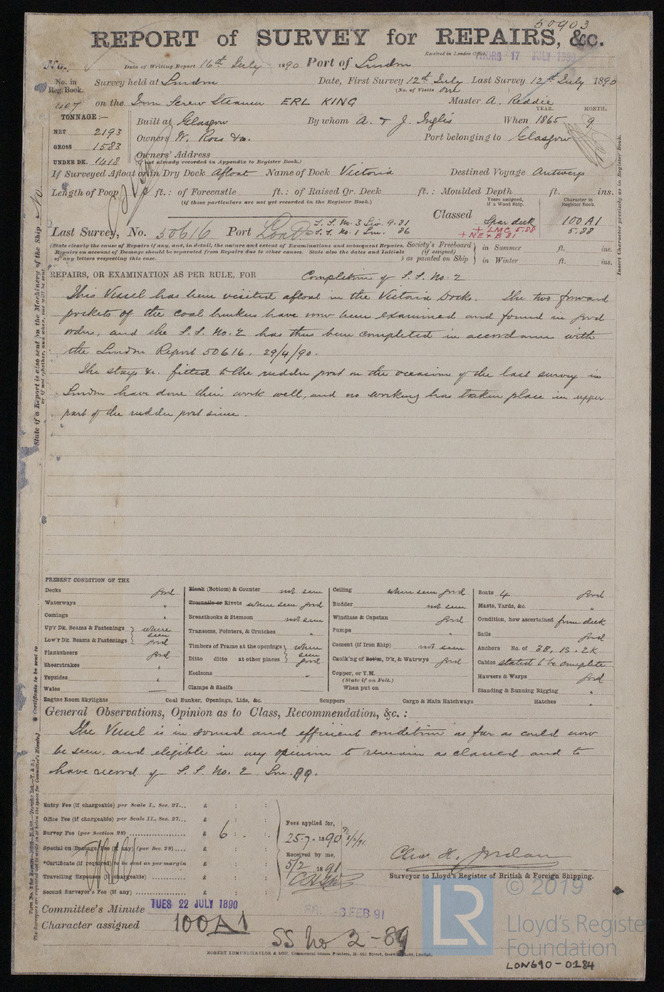 50903
REPORT of SURVEY for REPAIRS, &c.
No. Date of Writing Report 16th July 1890 Port of London
Received in London Office THURS 17 JULY 1890
No. in Reg. Book. Survey held at London Date, First Survey 12th July Last Survey 12th July 1890
(No. of Visits one)
447 on the Iron Screw Steamer ERL KING Master A. Reddie
TONNAGE:— Built at Glasgow By whom A. & J. Inglis When 1865 9
YEAR. MONTH.
NET 2193 Owners W. Ross &co. Port belonging to Glasgow
GROSS 1583 Owners' Address
UNDER DK. 1418 (If not already recorded in Appendix to Register Book.)
If Surveyed Afloat or in Dry Dock Afloat Name of Dock Victoria Destined Voyage Antwerp
Length of Poop ft.: of Forecastle ft.: of Raised Qr. Deck ft.: Moulded Depth ft. ins.
(If those particulars are not yet recorded in the Register Book.)
Years assigned, if a Wood Ship. Character in Register Book.
Classed Spar deck 100 A1
+ LMC 5.88 5.88
+ NE & B 81
Last Survey, No. 50616 Port Lond S.S. No. 3 Liv. 9.81
S.S. No. 1 Lon. 86
(State clearly the cause of Repairs if any, and, in detail, the nature and extent of Examinations and subsequent Repairs. Repairs on account of Damage should be separated from Repairs due to other causes. State also the Dates and Initials of any letters respecting this case.
Society's Freeboard (if assigned) as painted on Ship in Summer ft. ins.
in Winter ft. ins.
REPAIRS, OR EXAMINATION AS PER RULE, FOR Completion of S.S. No. 2
This Vessel has been visited afloat in the Victoria Docks. The two forward
pockets of the coal bunkers have now been examined and found in good
order, and the S.S. No. 2 has thus been completed in accordance with
the London Report 50616. 29/4/90.
The stays &c. fitted to the rudder post on the occasion of the last survey in
London have done their work well, and no working has taken place in upper
part of the rudder post since.
PRESENT CONDITION OF THE
Decks good
Waterways "
Comings "
Up'r Dk. Beams & Fastenings where
Low'r Dk. Beams & Fastenings seen good
Planksheers good
Sheerstrakes "
Topsides "
Wales —
Engine Room Skylights "
Blank (Bottom) & Counter not seen
Rivets where seen good
Breasthooks & Stemson not seen
Transoms, Pointers, & Crutches "
Timbers of Frame at the openings where
Ditto ditto at other places seen good
Keelsons "
Clamps & Shelfs
Coal Bunker, Openings, Lids, &c.
Ceiling where seen good
Rudder not seen
Windlass & Capstan good
Pumps "
Cement (if Iron Ship) not seen
Caulk'ng of D'k, & Watrwys good
Copper, or Y.M.
(State if on Felt.)
When put on
Scuppers Cargo & Main Hatchways
Boats 4 good
Masts, Yards, &c. "
Condition, how ascertained from deck
Sails good
Anchors No. of 3B, 1S, 2K
Cables stated to be complete
Hawsers & Warps good
Standing & Running Rigging "
Hatches "
General Observations, Opinion as to Class, Recommendation, &c. :
This Vessel is in sound and efficient condition as far as could now
be seen, and eligible in my opinion to remain as classed and to
have record of S.S. No. 2 Lon. 89.
Entry Fee (if chargeable) per Scale I., Sec. 27... £ : :
Office Fee (if chargeable) per Scale II., Sec. 27... £ : :
Survey Fee (per Section 28) £ 6 : :
Special or Damage Fee (if any) (per Sec. 28) £ : :
*Certificate (if required) to be sent as per margin £ : :
Travelling Expenses (if chargeable) £ : :
Second Surveyor's Fee (if any) £ : :
Fees applied for,
25.7.1890
Received by me,
5/2 1891
Chas H. Jordan
Surveyor to Lloyd's Register of British & Foreign Shipping.
Committee's Minute TUES 22 JULY 1890
FEB 91
Character assigned 100A1
SS No 2-89
© 2019
LR
Lloyd's Register
Foundation
LON690-0184
Insert Character precisely as in Register Book.
State if a Report is also sent on the Machinery of the Ship